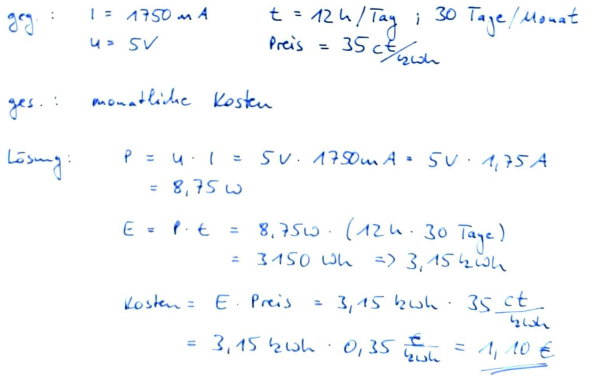 geg.: I = 1750mA t = 12h/Tag ; 30 Tage/Monat
U = 5V Preis = 35 ct/kWh
ges.: monatliche Kosten
Lösung: P = U · I = 5V · 1750mA = 5V · 1,75A
= 8,75W
E = P · t = 8,75W · (12h · 30 Tage)
= 3150 Wh => 3,15kWh
Kosten = E · Preis = 3,15 kWh · 35 ct/kWh
= 3,15 kWh · 0,35 €/kWh = 1,10 €